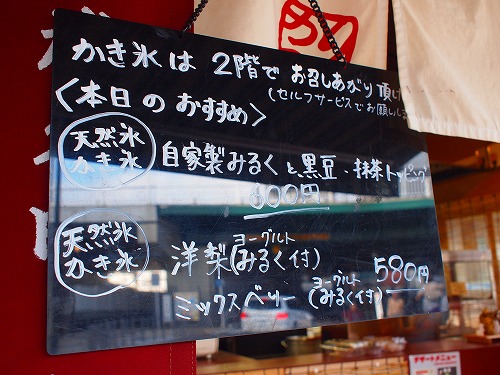 かき氷は 2階で お召しあがり 頂け
(セルフサービスでお願いしま
〈本日のおすすめ〉
天然氷
かき氷
自家製みるくと黒豆・抹茶トッピング
600円
天然氷
かき氷
洋梨(ヨーグルトみるく付)
ミックスベリー(ヨーグルトみるく付) 580円
デザートメニュー